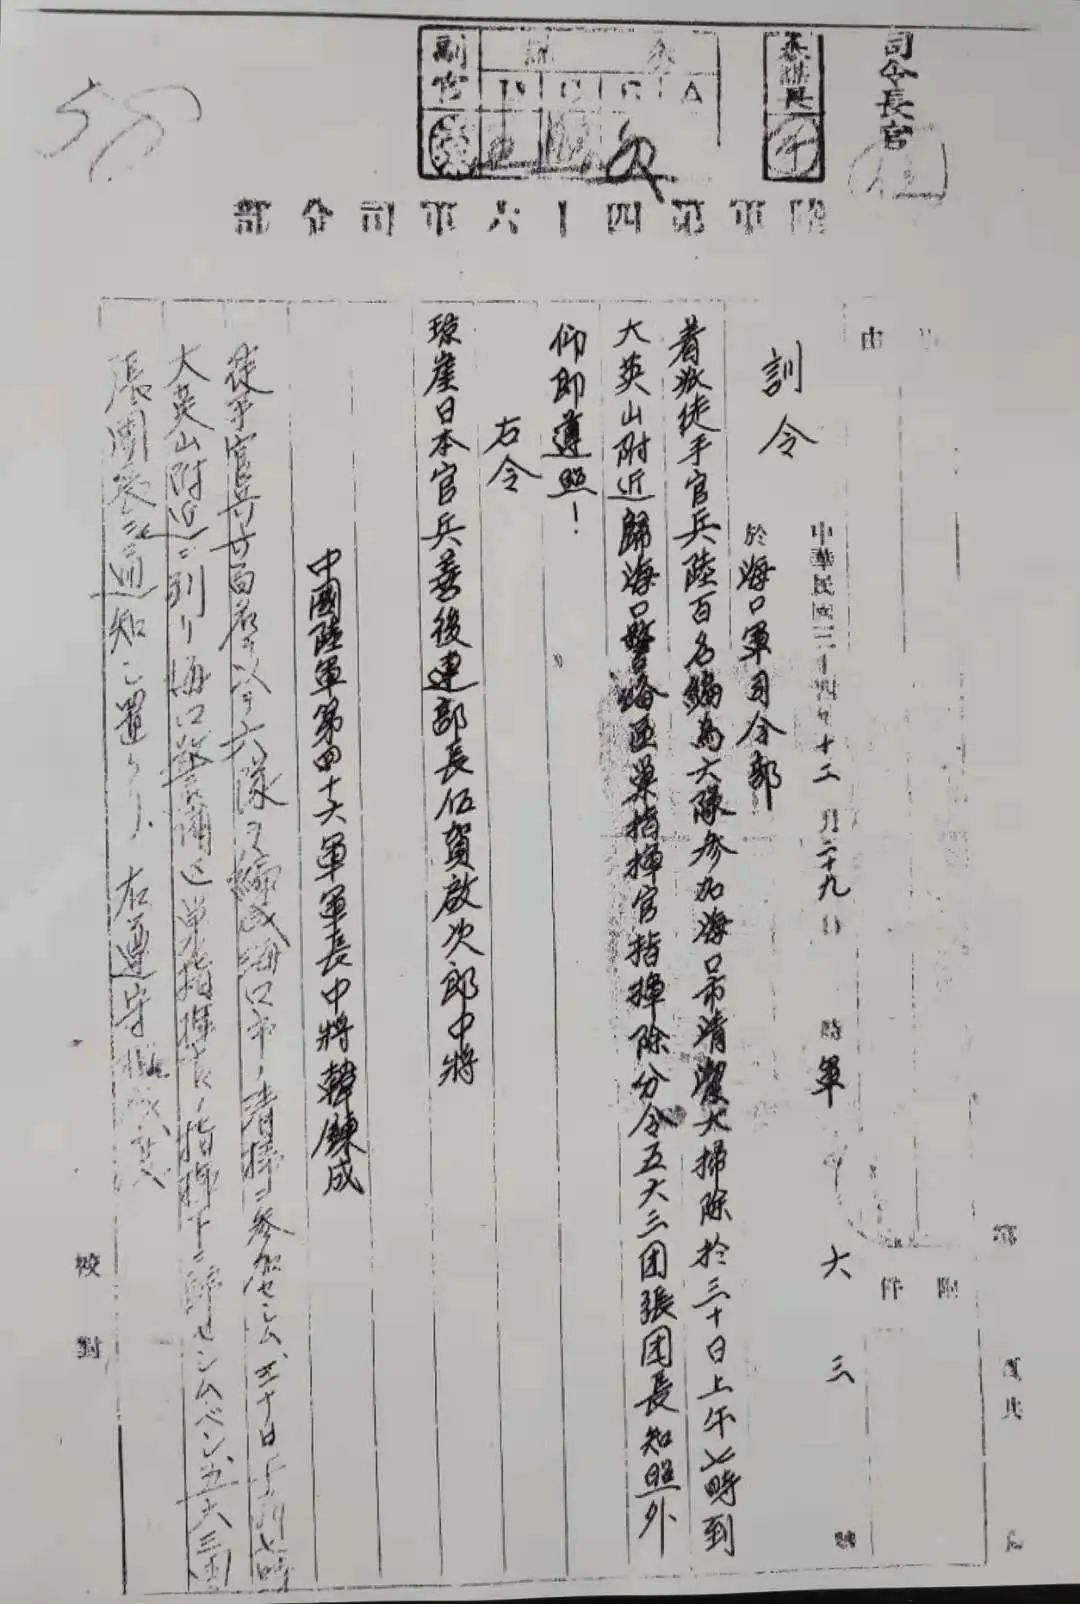 司令長官
參謀長
副官
D C B A
陸軍第四十六軍司令部
由
附
件
訓令
中華民國三十四年十二月二十九日 時 軍 大 三 號
於海口軍司令部
着派徒手官兵陸百名編為六隊參加海口市清潔大掃除於三十日上午七時到
大英山附近歸海口警備區單指揮官指揮除分令五六三团張团長知照外
仰即遵照！
右令
琼崖日本官兵善後連部長伍賀啟次郎中將
中國陸軍第四十六軍軍長中將韓鍊成
徒手官兵 百名ヲ以テ六隊ヲ編成海口市ノ清掃ニ参加セシム三十日午前七時
大英山附近ニ到リ海口警備区単指揮官ノ指揮下ニ帰セシムベシ五六三團
張團長ニ通知シ置ケリ 右遵守
校對